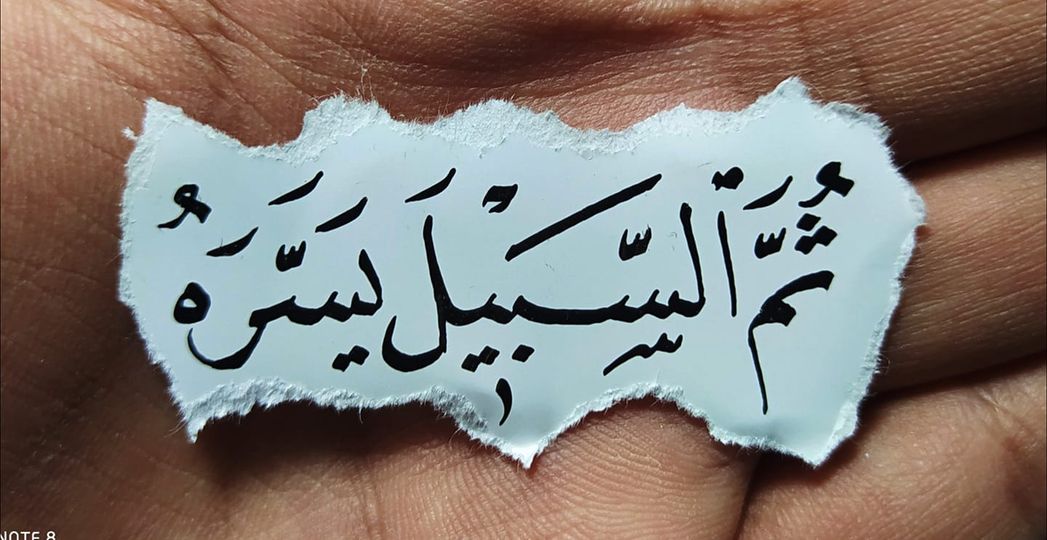 ثُمَّ ٱلسَّبِيْلَ يَسَّرَهُ
NOTE 8